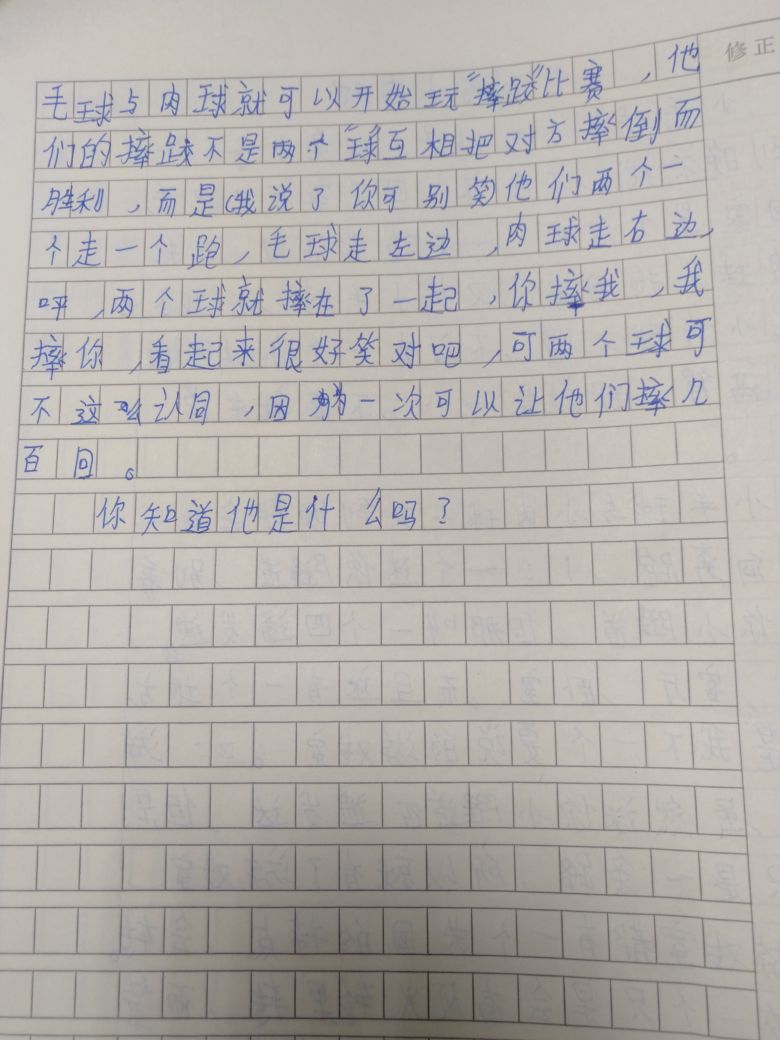 修正
毛球与肉球就可以开始玩“摔跤”比赛，他
们的摔跤不是两个“球”互相把对方摔倒而
胜利，而是（我说了你可别笑）他们两个一
个走一个跑，毛球走左边，肉球走右边，
呯，两个球就摔在了一起，你摔我，我
摔你，看起来很好笑对吧，可两个球可
不这么认同，因为一次可以让他们摔几
百回。
你知道他是什么吗？